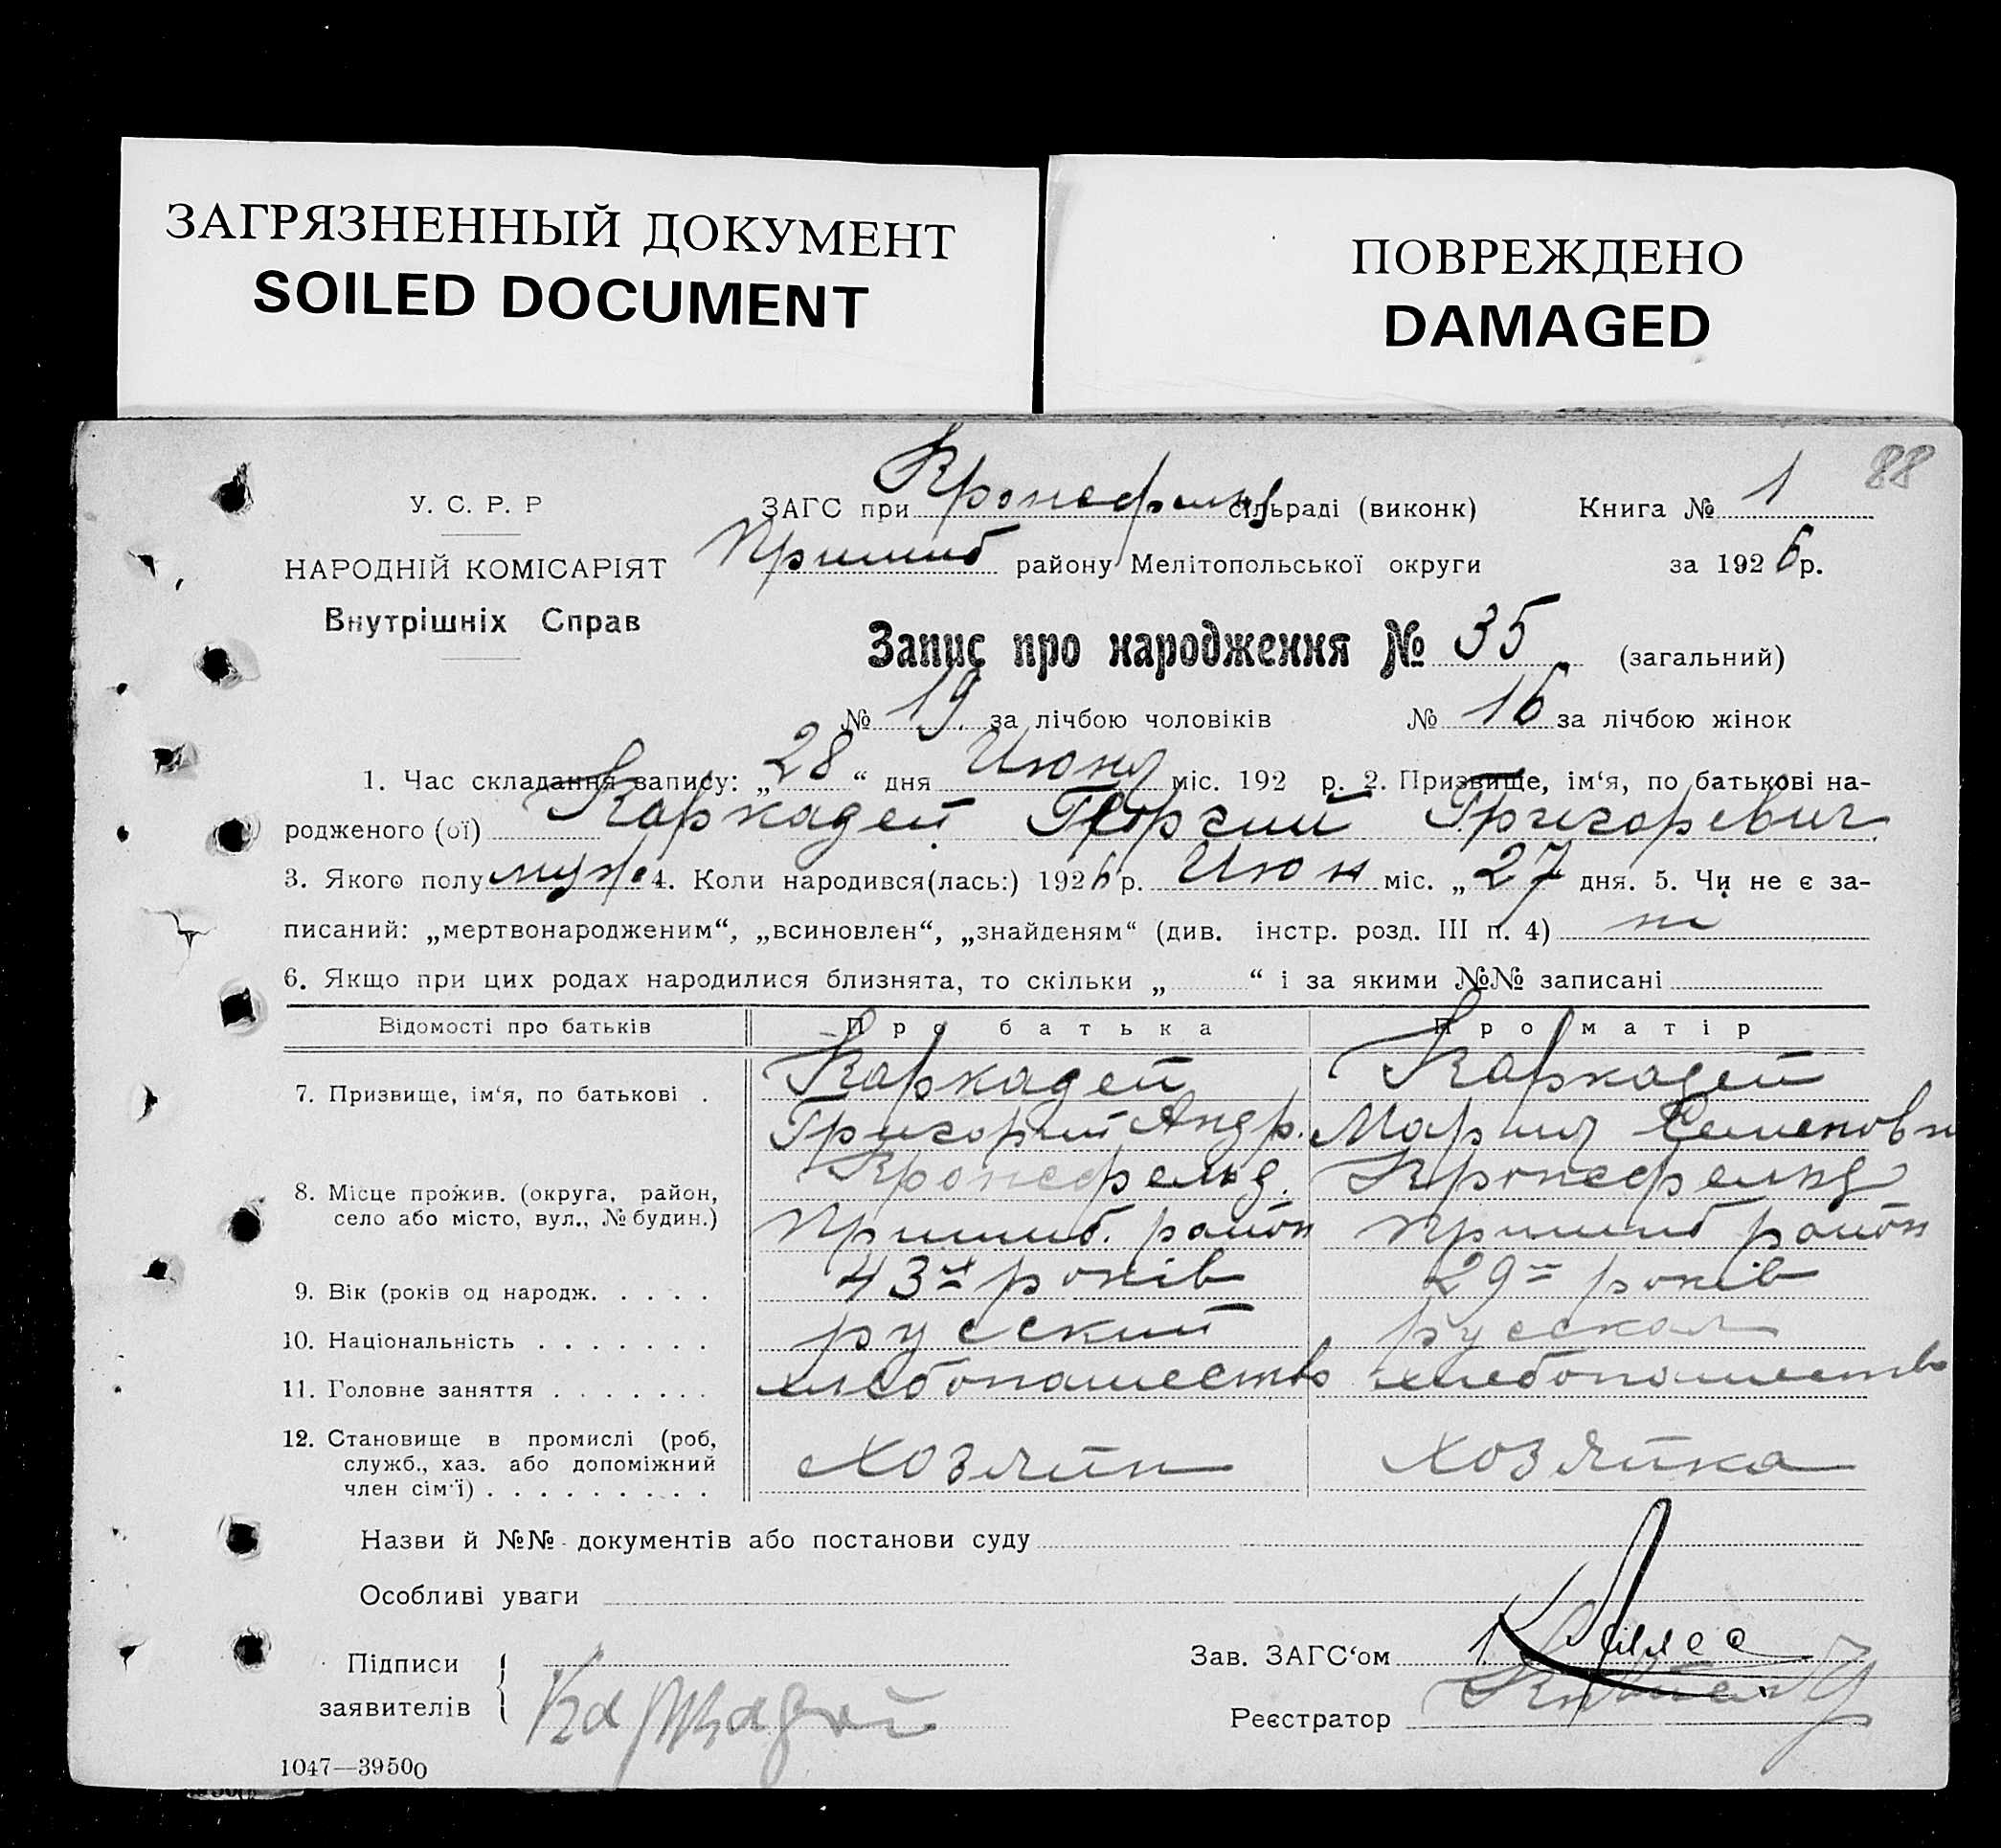 ЗАГРЯЗНЕННЫЙ ДОКУМЕНТ
SOILED DOCUMENT
ПОВРЕЖДЕНО
DAMAGED
88
У. С. Р. Р
НАРОДНІЙ КОМІСАРІЯТ
Внутрішніх Справ
ЗАГС при Кронсфельд сільраді (виконк) Книга № 1
Пришиб району Мелітопольської округи за 1926 р.
Запис про народження № 35 (загальний)
№ 19 за лічбою чоловіків № 16 за лічбою жінок
1. Час складання запису: „28“ дня Июня міс. 192 р. 2. Призвище, ім‘я, по батькові на-
родженого (ої) Каркадей Георгий Григоревич
3. Якого полу муж. 4. Коли народився(лась:) 1926 р. Июн міс. „27 дня. 5. Чи не є за-
писаний: „мертвонародженим“, „всиновлен“, „знайденям“ (див. інстр. розд. III п. 4)
6. Якщо при цих родах народилися близнята, то скільки „ “ і за якими №№ записані
Відомості про батьків Про батька Про матір
7. Призвище, ім‘я, по батькові . Каркадей Каркадей
Григорий Андр. Мария Семеновн
8. Місце прожив. (округа, район, село або місто, вул., № будин.) Кронсфельд. Кронсфельд
Пришиб. район Пришиб район
9. Вік (років од народж. . . . . 43 років 29 років
10. Національність . . . . . . . русский русская
11. Головне заняття . . . . . . . хлебопашество хлебопашество
12. Становище в промислі (роб, служб., хаз. або допоміжний член сім‘ї) . . . . . . . . . хозяйн хозяйка
Назви й №№ документів або постанови суду
Особливі уваги
Підписи заявителів Каркадей
Зав. ЗАГС‘ом
Реєстратор
1047—39500